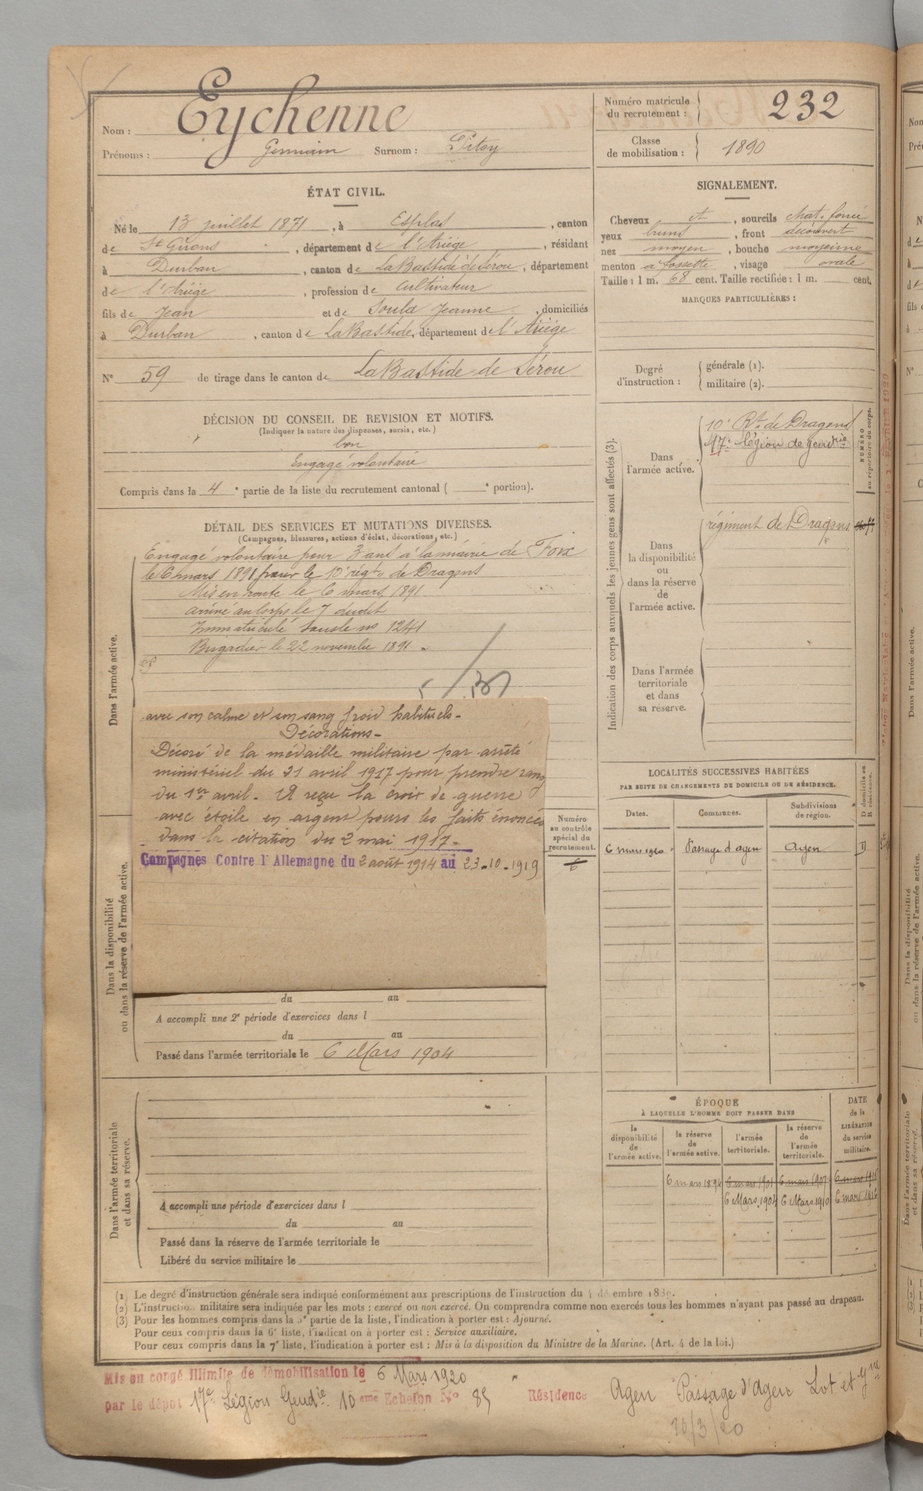 Nom : Eychenne
Prénoms : Germain Surnom : Pitoy
Numéro matricule du recrutement : 232
Classe de mobilisation : 1890
ÉTAT CIVIL.
Né le 13 juillet 1871, à Esplas, canton
de St Girons, département de l'Ariège, résidant
à Durban, canton de LaBastide de Sérou, département
de l'Ariège, profession de Cultivateur
fils de Jean et de Soula Jeanne, domiciliés
à Durban, canton de LaBastide, département de l'Ariège
N° 59 de tirage dans le canton de LaBastide de Sérou
SIGNALEMENT.
Cheveux et, sourcils chat. foncé
yeux bruns, front découvert
nez moyen, bouche moyenne
menton à fossette, visage ovale
Taille : 1 m. 68 cent. Taille rectifiée : 1 m. cent.
MARQUES PARTICULIÈRES :
Degré d'instruction : générale (1). militaire (2).
DÉCISION DU CONSEIL DE REVISION ET MOTIFS.
(Indiquer la nature des dispenses, sursis, etc.)
bon
Engagé volontaire
Compris dans la 4e partie de la liste du recrutement cantonal ( e portion).
DÉTAIL DES SERVICES ET MUTATIONS DIVERSES.
(Campagnes, blessures, actions d'éclat, décorations, etc.)
Dans l'armée active.
Engagé volontaire pour 3 ans à la mairie de Foix
le 6 mars 1891 pour le 10e régt de Dragons
Mis en route le 6 mars 1891
arrivé au corps le 7 dudit
Immatriculé sous le no 1241
Brigadier le 22 novembre 1891.
avec son calme et son sang froid habituels.
Décorations.
Décoré de la médaille militaire par arrêté
ministériel du 21 avril 1917 pour prendre rang
du 1er avril. A reçu la croix de guerre
avec étoile en argent pour les faits énoncés
dans la citation du 2 mai 1917.
Campagnes Contre l'Allemagne du 2 août 1914 au 23-10-1919
Dans la disponibilité ou dans la réserve de l'armée active.
du au
A accompli une 2e période d'exercices dans l
du au
Passé dans l'armée territoriale le 6 Mars 1904
Dans l'armée territoriale et dans sa réserve.
A accompli une période d'exercices dans l
du au
Passé dans la réserve de l'armée territoriale le
Libéré du service militaire le
Numéro au contrôle spécial du recrutement.
Indication des corps auxquels les jeunes gens sont affectés (3).
Dans l'armée active.
10e Rt de Dragons
17e légion de Gendrie
NUMÉRO au répertoire du corps.
Dans la disponibilité ou dans la réserve de l'armée active.
régiment de Dragons
Dans l'armée territoriale et dans sa réserve.
LOCALITÉS SUCCESSIVES HABITÉES
PAR SUITE DE CHANGEMENTS DE DOMICILE OU DE RÉSIDENCE.
Dates. Communes. Subdivisions de région. D domicile ou R résidence.
6 mars 1920 Passage d'agen Agen D
ÉPOQUE
À LAQUELLE L'HOMME DOIT PASSER DANS
la disponibilité de l'armée active. la réserve de l'armée active. l'armée territoriale. la réserve de l'armée territoriale. DATE de la LIBÉRATION du service militaire.
6 mars 1894 6 mars 1901 6 mars 1907 6 mars 1916
6 Mars 1904 6 Mars 1910 6 mars 1916
(1) Le degré d'instruction générale sera indiqué conformément aux prescriptions de l'instruction du
(2) L'instruction militaire sera indiquée par les mots : exercé ou non exercé. On comprendra comme non exercés tous les hommes n'ayant pas passé au drapeau.
(3) Pour les hommes compris dans la 5e partie de la liste, l'indication à porter est : Ajourné.
Pour ceux compris dans la 6e liste, l'indication à porter est : Service auxiliaire.
Pour ceux compris dans la 7e liste, l'indication à porter est : Mis à la disposition du Ministre de la Marine. (Art. 4 de la loi.)
Mis en congé illimité de démobilisation le 6 Mars 1920
par le dépôt 17e Légion Gendie 10 eme Echelon N° 85 Résidence Agen Passage d'Agen Lot et Gne
30/3/20